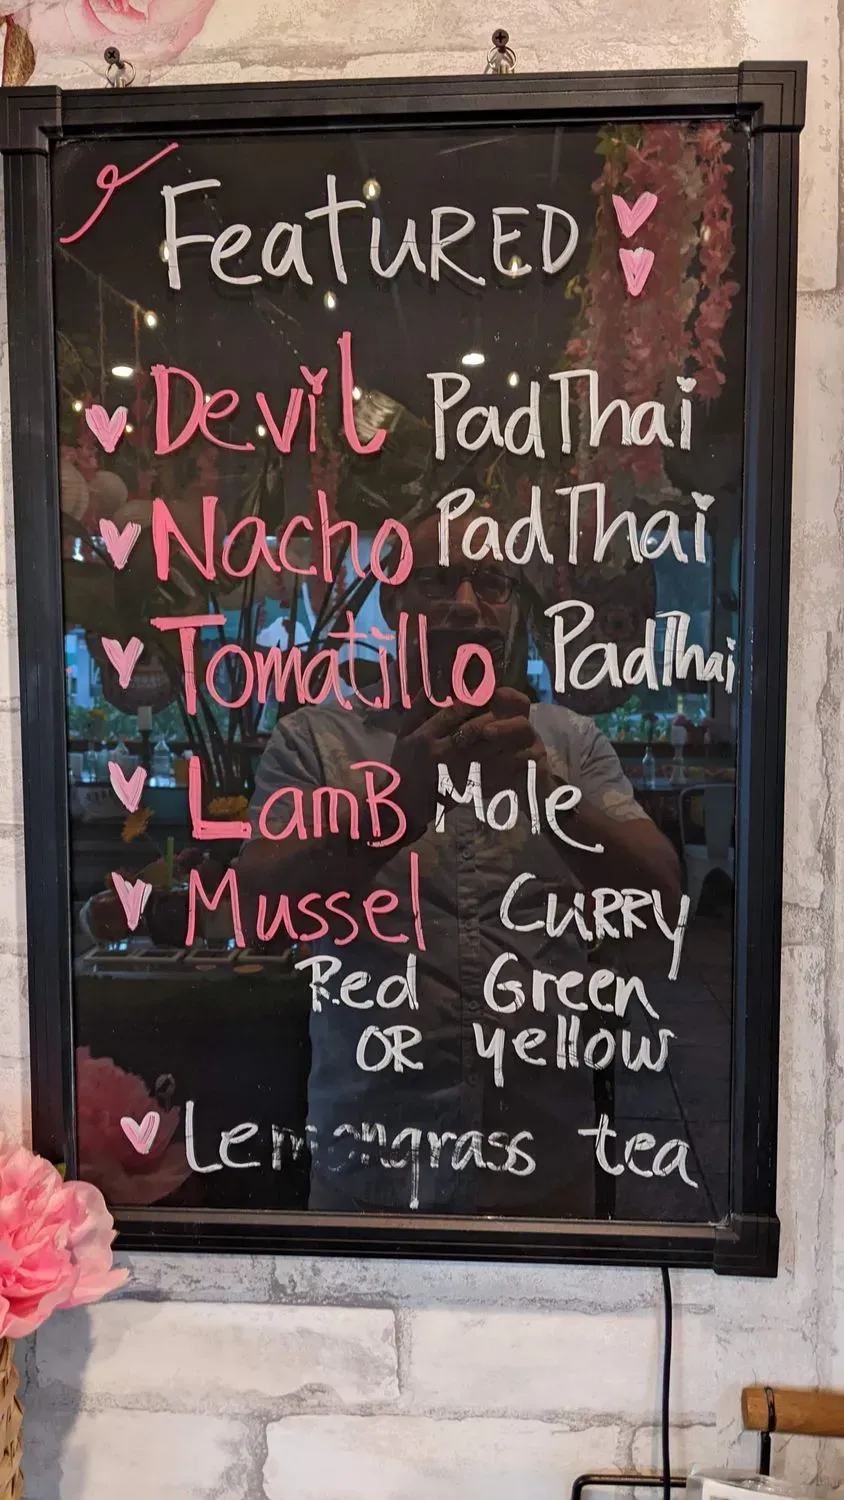 FeatuRED
Devil PadThai
Nacho PadThai
Tomatillo PadThai
LamB Mole
Mussel CuRRy
Red Green
OR yellow
Lemongrass tea